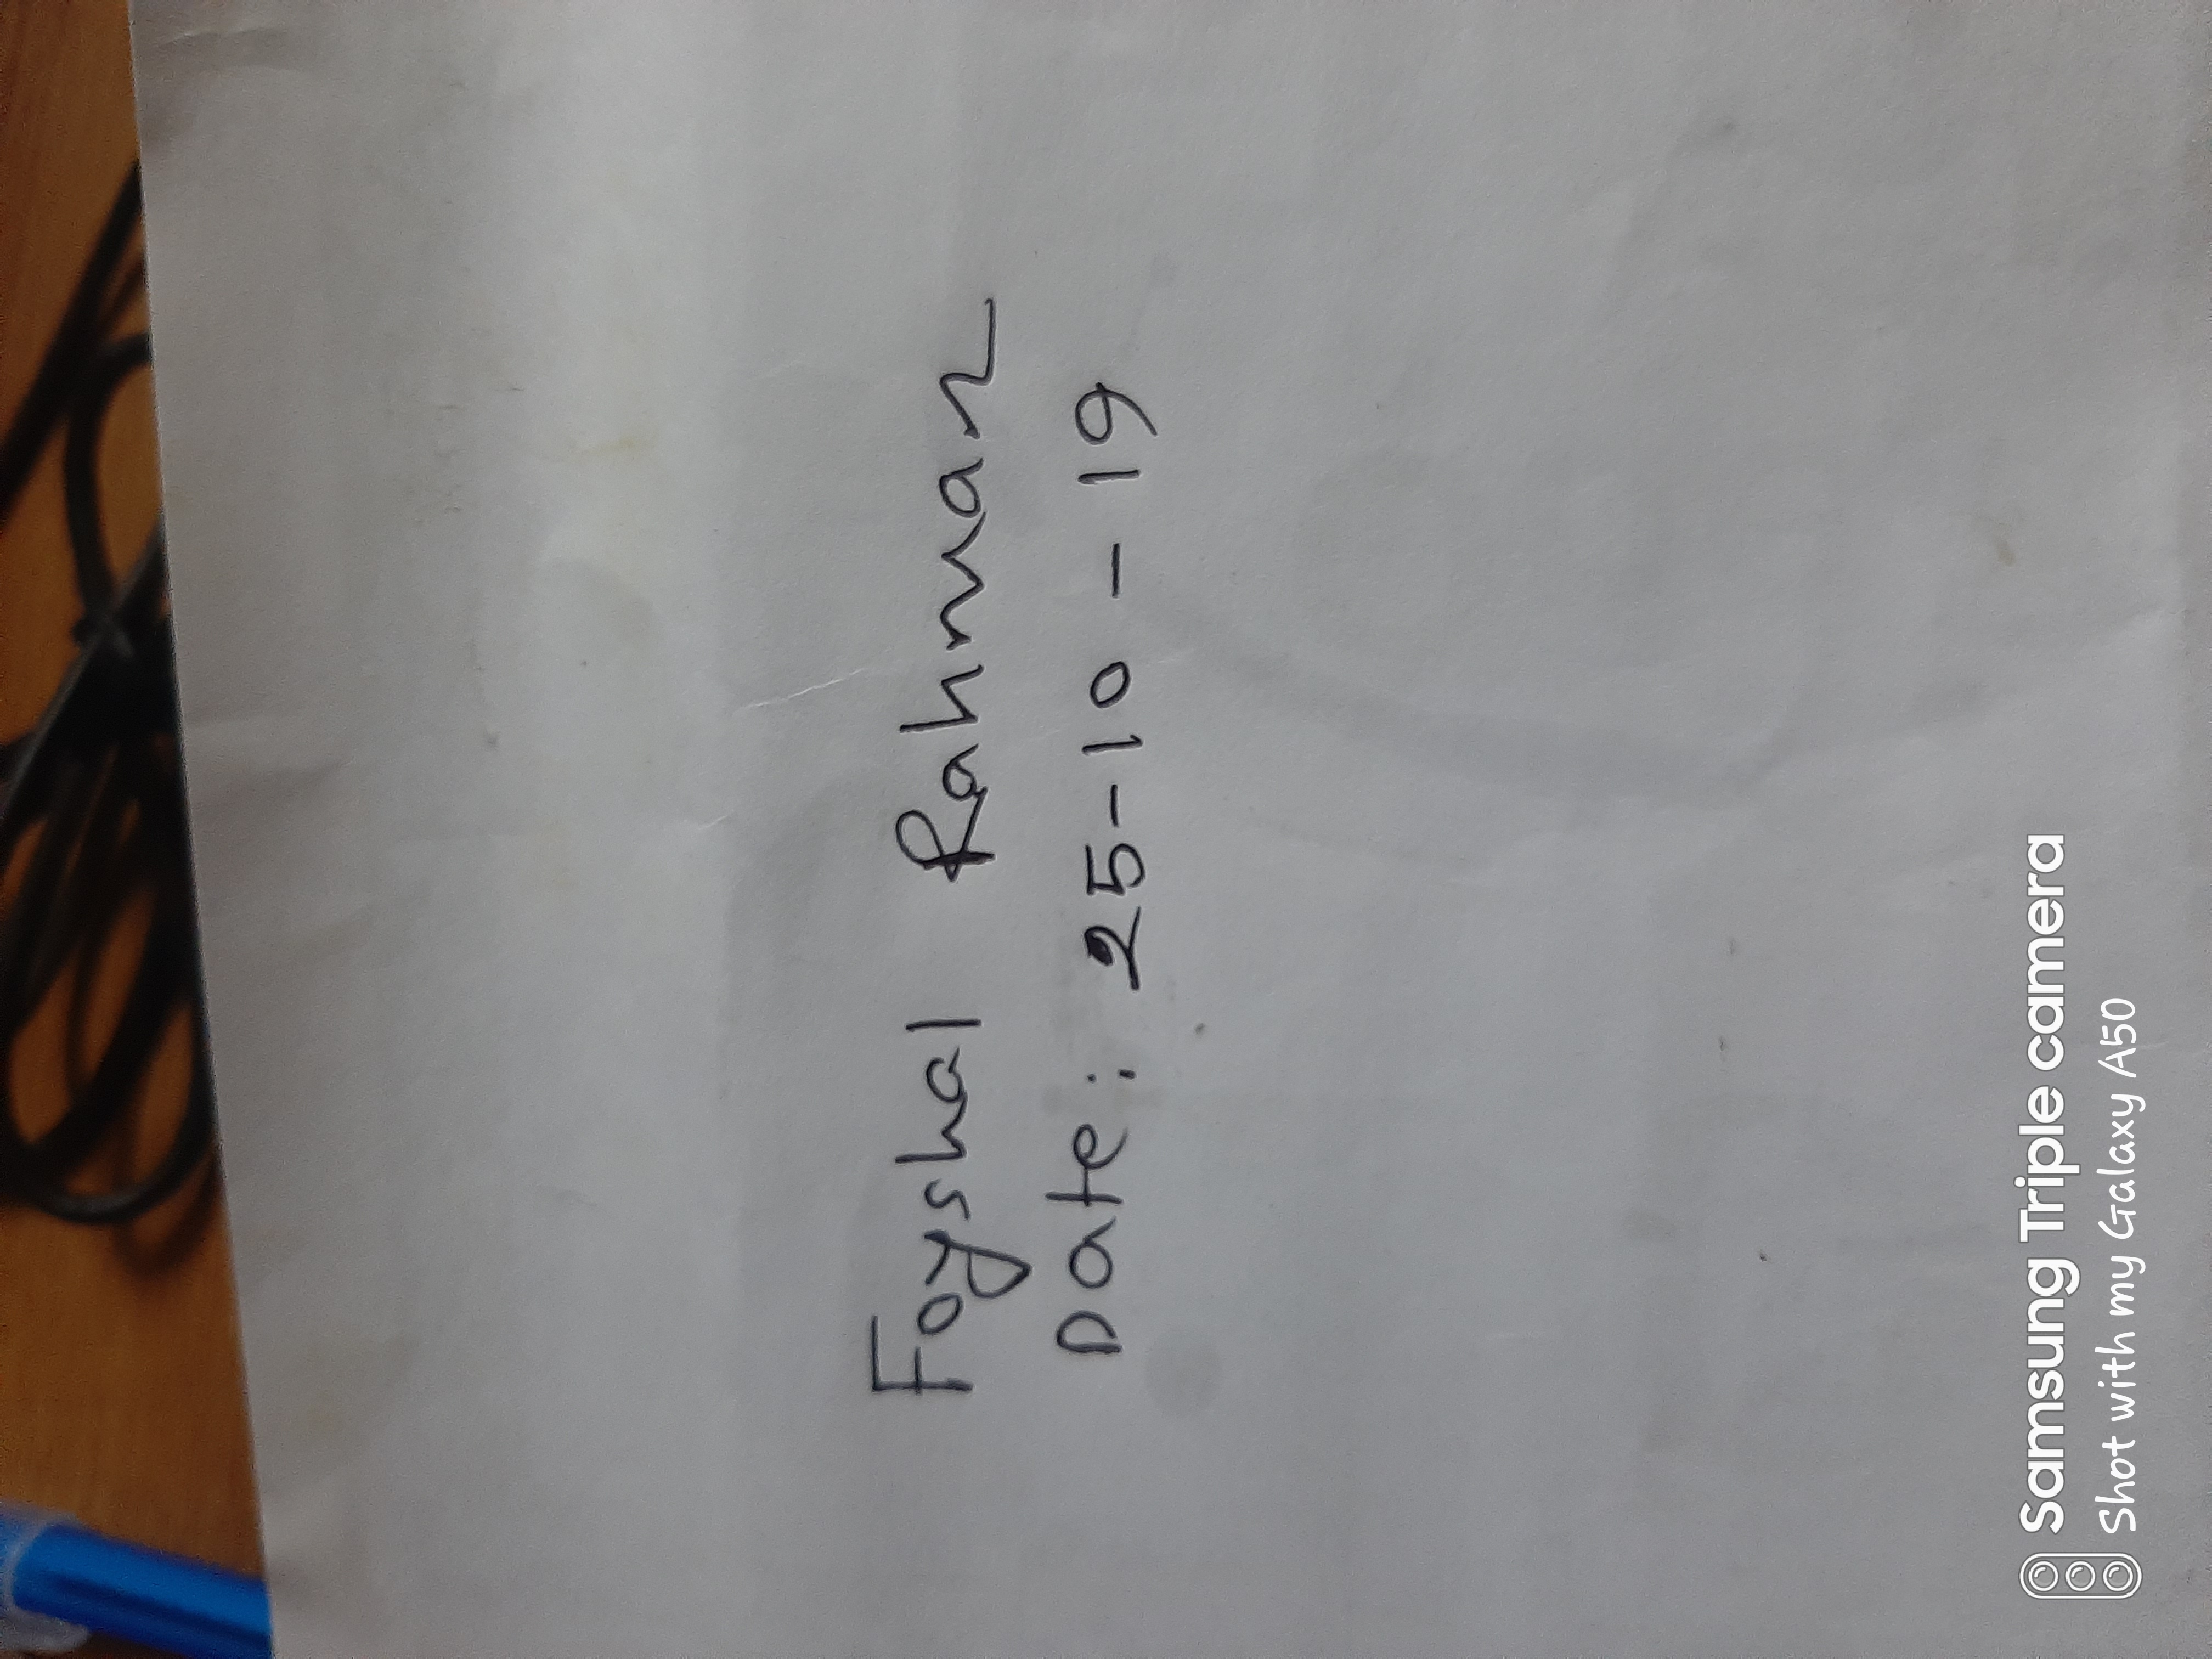 Foyshal Rahman
Date: 25-10-19
Samsung Triple camera
Shot with my Galaxy A50